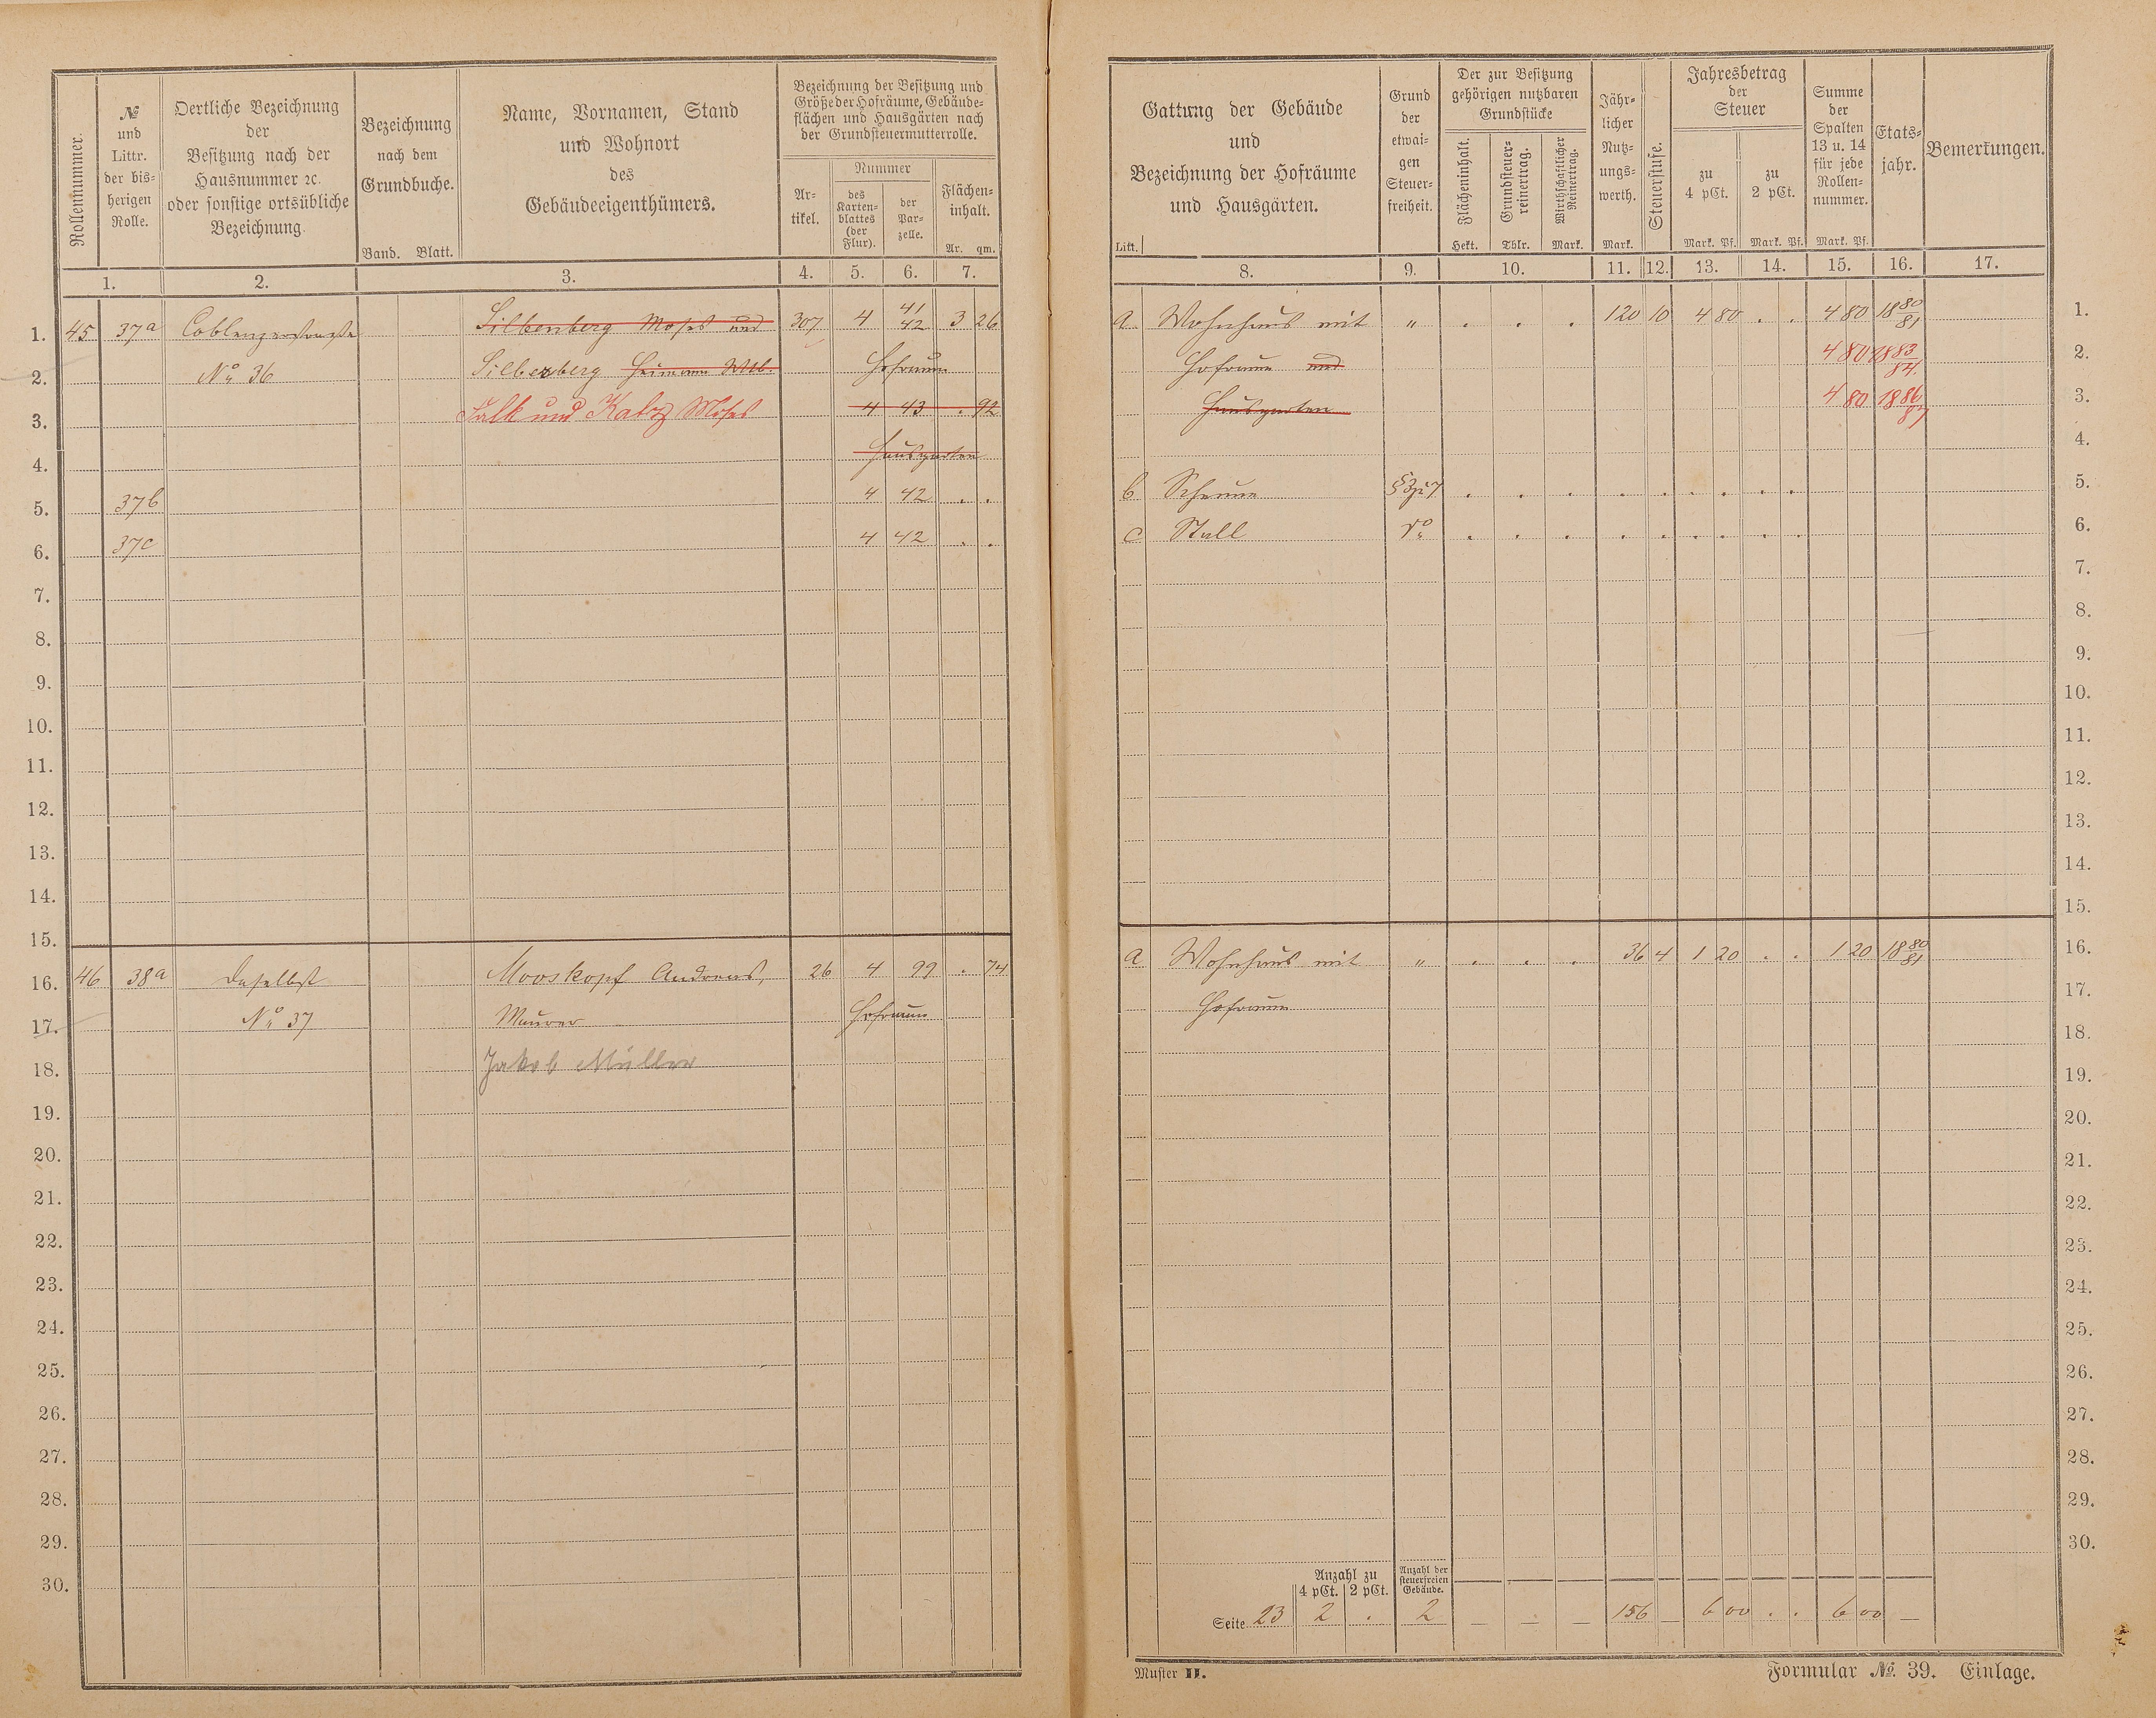 Rollennummer.
№ und Littr. der bis= herigen Rolle.
Oertliche Bezeichnung der Besitzung nach der Hausnummer ꝛc. oder sonstige ortsübliche Bezeichnung.
Bezeichnung nach dem Grundbuche.
Band. Blatt.
Name, Vornamen, Stand und Wohnort des Gebäudeeigenthümers.
Bezeichnung der Besitzung und Größe der Hofräume, Gebäude= flächen und Hausgärten nach der Grundsteuermutterrolle.
Ar= tikel.
Nummer
des Karten= blattes (der Flur).
der Par= zelle.
Flächen= inhalt.
Ar. qm.
1. 2. 3. 4. 5. 6. 7.
1. 45 37a Coblenzerstraße Silberberg Moses und 307 4 41 42 3 26
2. No 36 Silberberg Heimann Wtb. Hofraum
3. Falk und Katz Moses 4 43 . 92
4. Hausgarten
5. 37b 4 42 . .
6. 37c 4 42 . .
7.
8.
9.
10.
11.
12.
13.
14.
15.
16. 46 38a Daselbst Mooskopf Andreas, 26 4 99 . 74
17. No 37 Maurer Hofraum
18. Jakob Müller
19.
20.
21.
22.
23.
24.
25.
26.
27.
28.
29.
30.
Gattung der Gebäude und Bezeichnung der Hofräume und Hausgärten.
Litt.
Grund der etwai= gen Steuer= freiheit.
Der zur Besitzung gehörigen nutzbaren Grundstücke
Flächeninhalt.
Grundsteuer= reinertrag.
Wirthschaftlicher Reinertrag.
Hekt. Thlr. Mark.
Jähr= licher Nutz= ungs= werth.
Mark.
Steuerstufe.
Jahresbetrag der Steuer
zu 4 pCt.
zu 2 pCt.
Mark. Pf. Mark. Pf.
Summe der Spalten 13 u. 14 für jede Rollen= nummer.
Mark. Pf.
Etats= jahr.
Bemerkungen.
8. 9. 10. 11. 12. 13. 14. 15. 16. 17.
a Wohnhaus mit " . . . 120 10 4 80 . . 4 80 1880/81 1.
Hofraum und 4 80 1883/84. 2.
Hausgarten 4 80 1886/87 3.
4.
b Scheune . . . . . . . . . 5.
c Stall do . . . . . . . . . 6.
7.
8.
9.
10.
11.
12.
13.
14.
15.
a Wohnhaus mit " . . . 36 4 1 20 . . 1 20 1880/81 16.
Hofraum 17.
18.
19.
20.
21.
22.
23.
24.
25.
26.
27.
28.
29.
30.
Anzahl zu
4 pCt. 2 pCt.
Anzahl der steuerfreien Gebäude.
Seite 23 2 . 2 — — — 156 — 6 00 . . 6 00 —
Muster II.
Formular №. 39. Einlage.